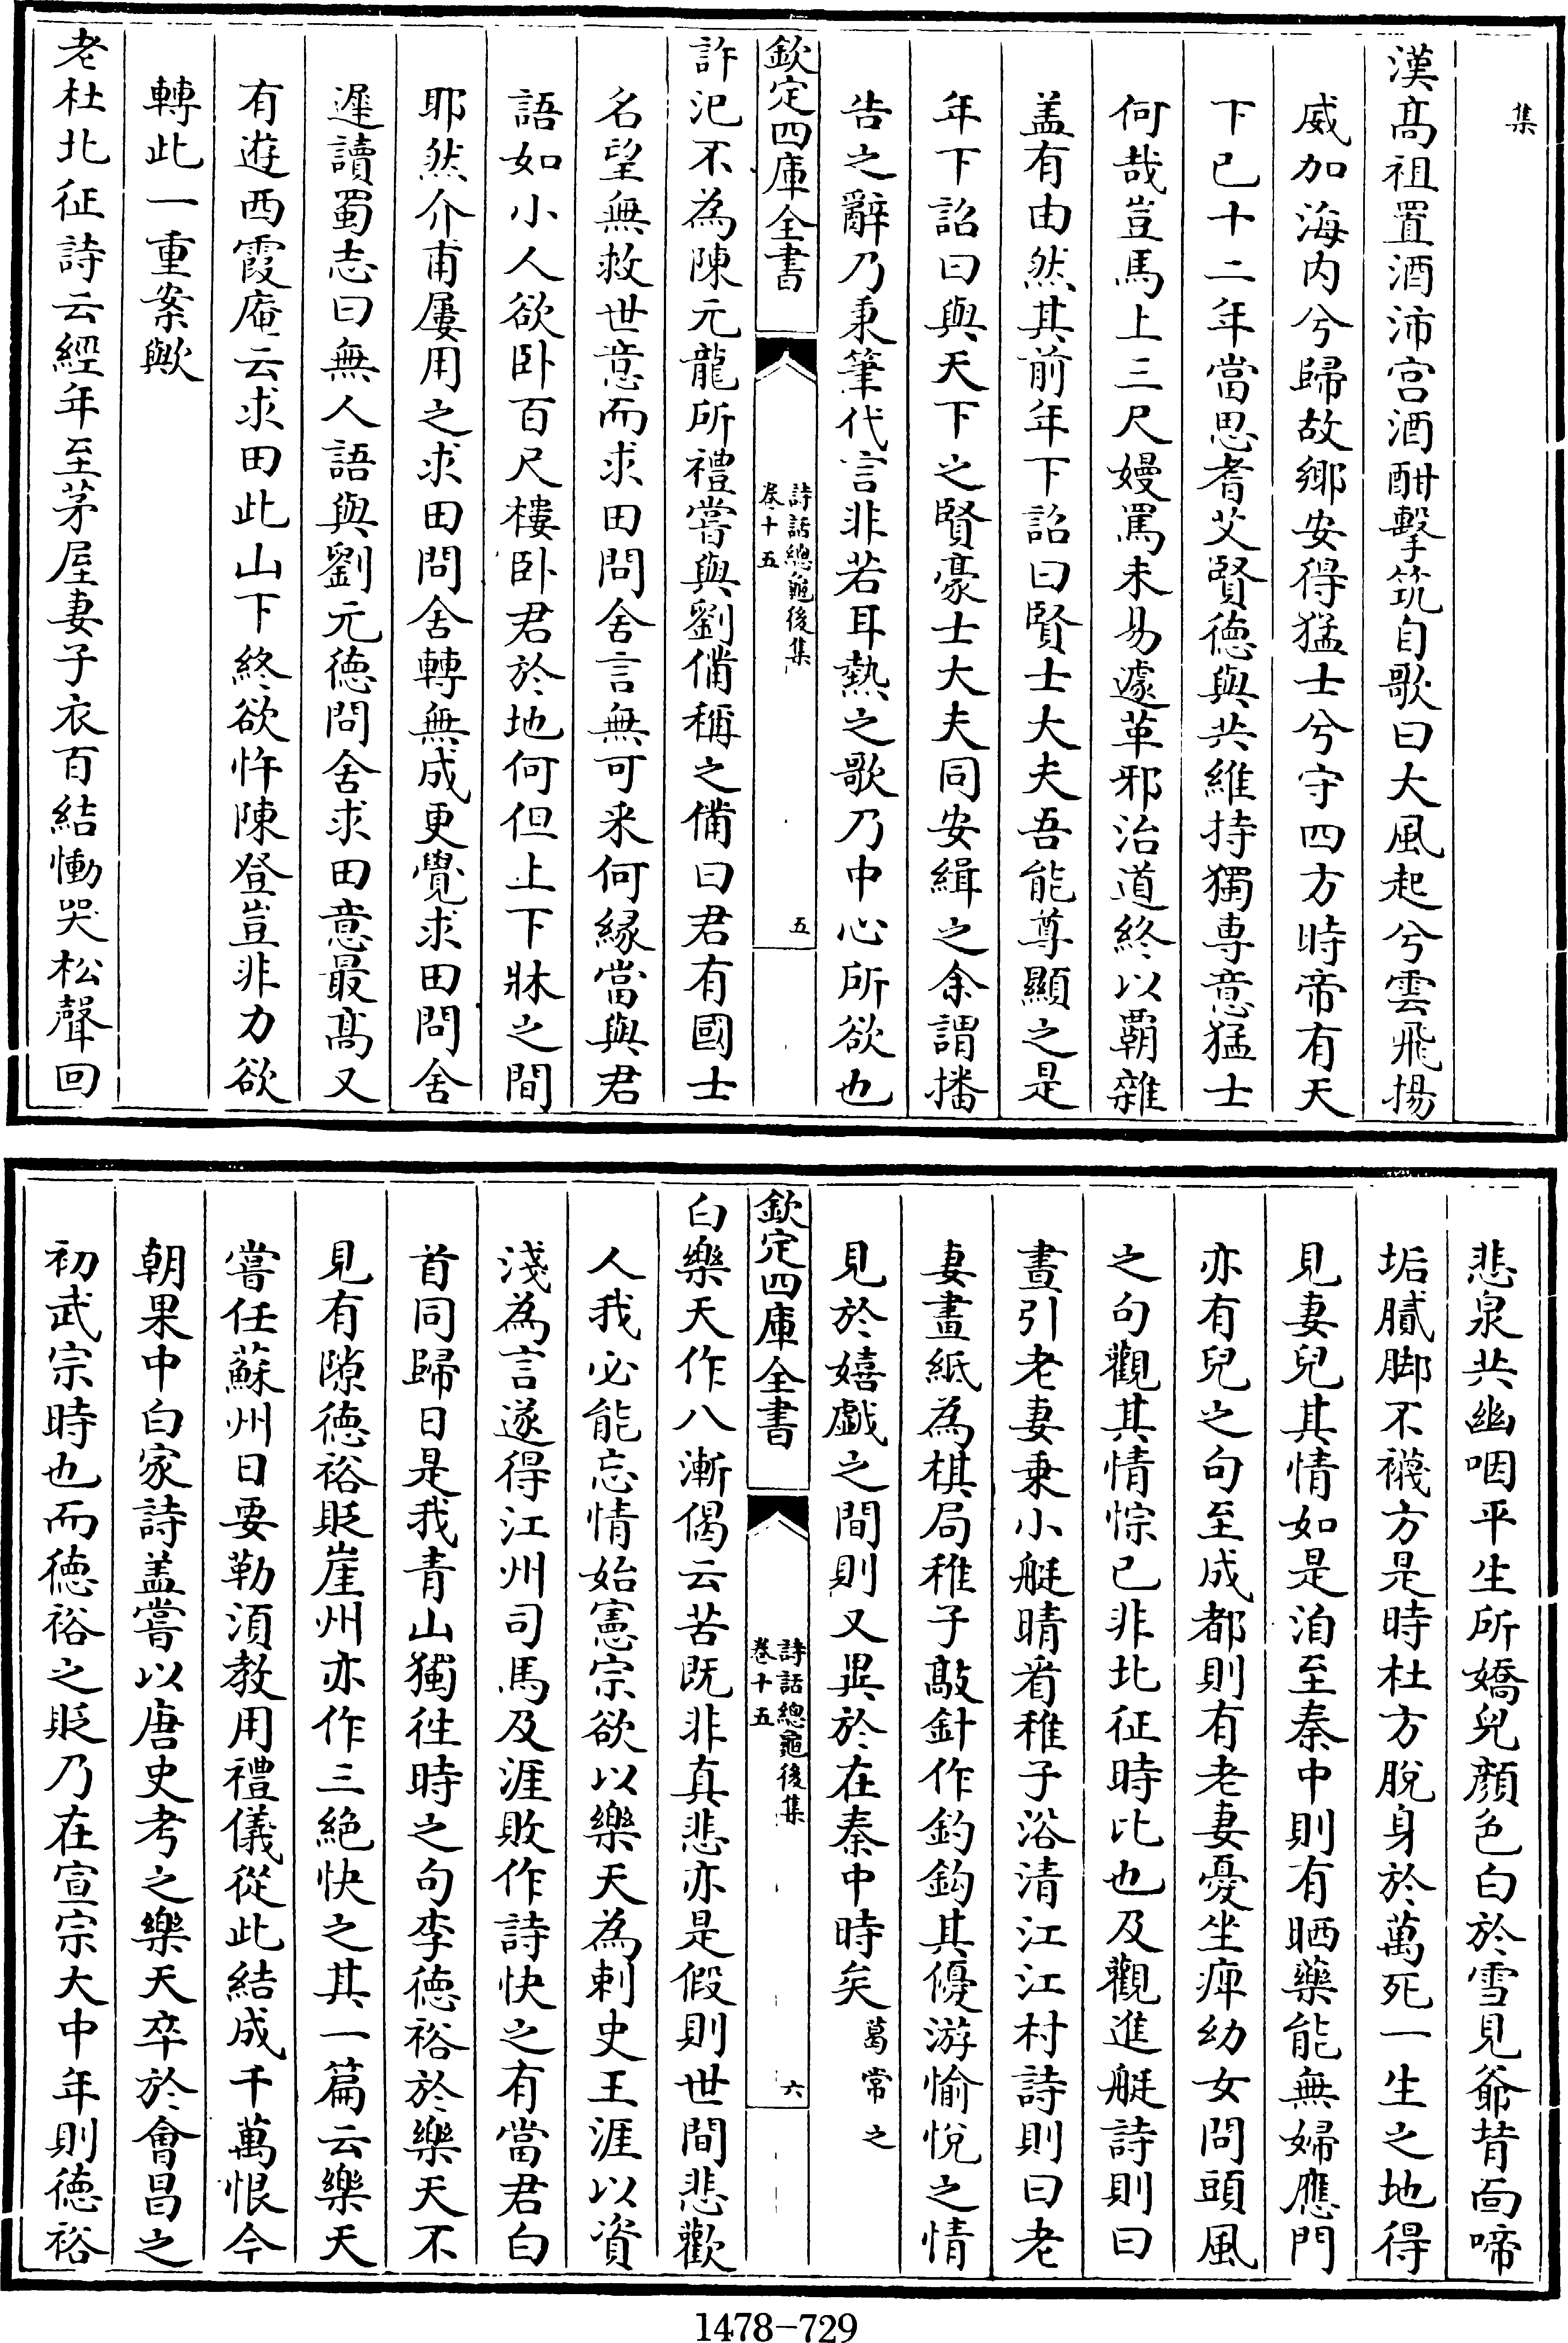 集
漢髙祖置酒沛宫酒酣擊筑自歌曰大風起兮雲飛揚
威加海内兮歸故鄉安得猛士兮守四方時帝有天
下已十二年當思耆艾賢徳與共維持獨専意猛士
何哉豈馬上三尺嫚罵未易遽革邪治道終以覇雜
盖有由然其前年下詔曰賢士大夫吾能尊顯之是
年下詔曰與天下之賢豪士大夫同安緝之余謂播
告之辭乃秉筆代言非若耳熱之歌乃中心所欲也
欽定四庫全書
詩話總龜後集
卷十五
五
許汜不為陳元龍所禮嘗與劉備稱之備曰君有國士
名望無救世意而求田問舍言無可采何縁當與君
語如小人欲卧百尺樓卧君於地何但上下牀之間
耶然介甫屢用之求田問舍轉無成更覺求田問舍
遲讀蜀志曰無人語與劉元徳問舍求田意最髙又
有遊西霞庵云求田此山下終欲忤陳登豈非力欲
轉此一重案歟
老杜北征詩云經年至茅屋妻子衣百結慟哭松聲回
悲泉共幽咽平生所嬌兒顔色白於雪見爺背靣啼
垢膩脚不襪方是時杜方脫身於萬死一生之地得
見妻兒其情如是洎至秦中則有晒藥能無婦應門
亦有兒之句至成都則有老妻憂坐痺幼女問頭風
之句觀其情悰已非北征時比也及觀進艇詩則曰
晝引老妻乗小艇晴看稚子浴清江江村詩則曰老
妻畫紙為棋局稚子敲針作釣鈎其優游愉悅之情
見於嬉戯之間則又異於在秦中時矣葛常之
欽定四庫全書
詩話總龜後集
卷十五
六
白樂天作八漸偈云苦既非真悲亦是假則世間悲歡
人我必能忘情始憲宗欲以樂天為刺史王涯以資
淺為言遂得江州司馬及涯敗作詩快之有當君白
首同歸日是我青山獨徃時之句李徳裕於樂天不
見有隙徳裕貶崖州亦作三絶快之其一篇云樂天
嘗任蘇州日要勒須教用禮儀從此結成千萬恨今
朝果中白家詩盖嘗以唐史考之樂天卒於會昌之
初武宗時也而徳裕之貶乃在宣宗大中年則徳裕
1478-729